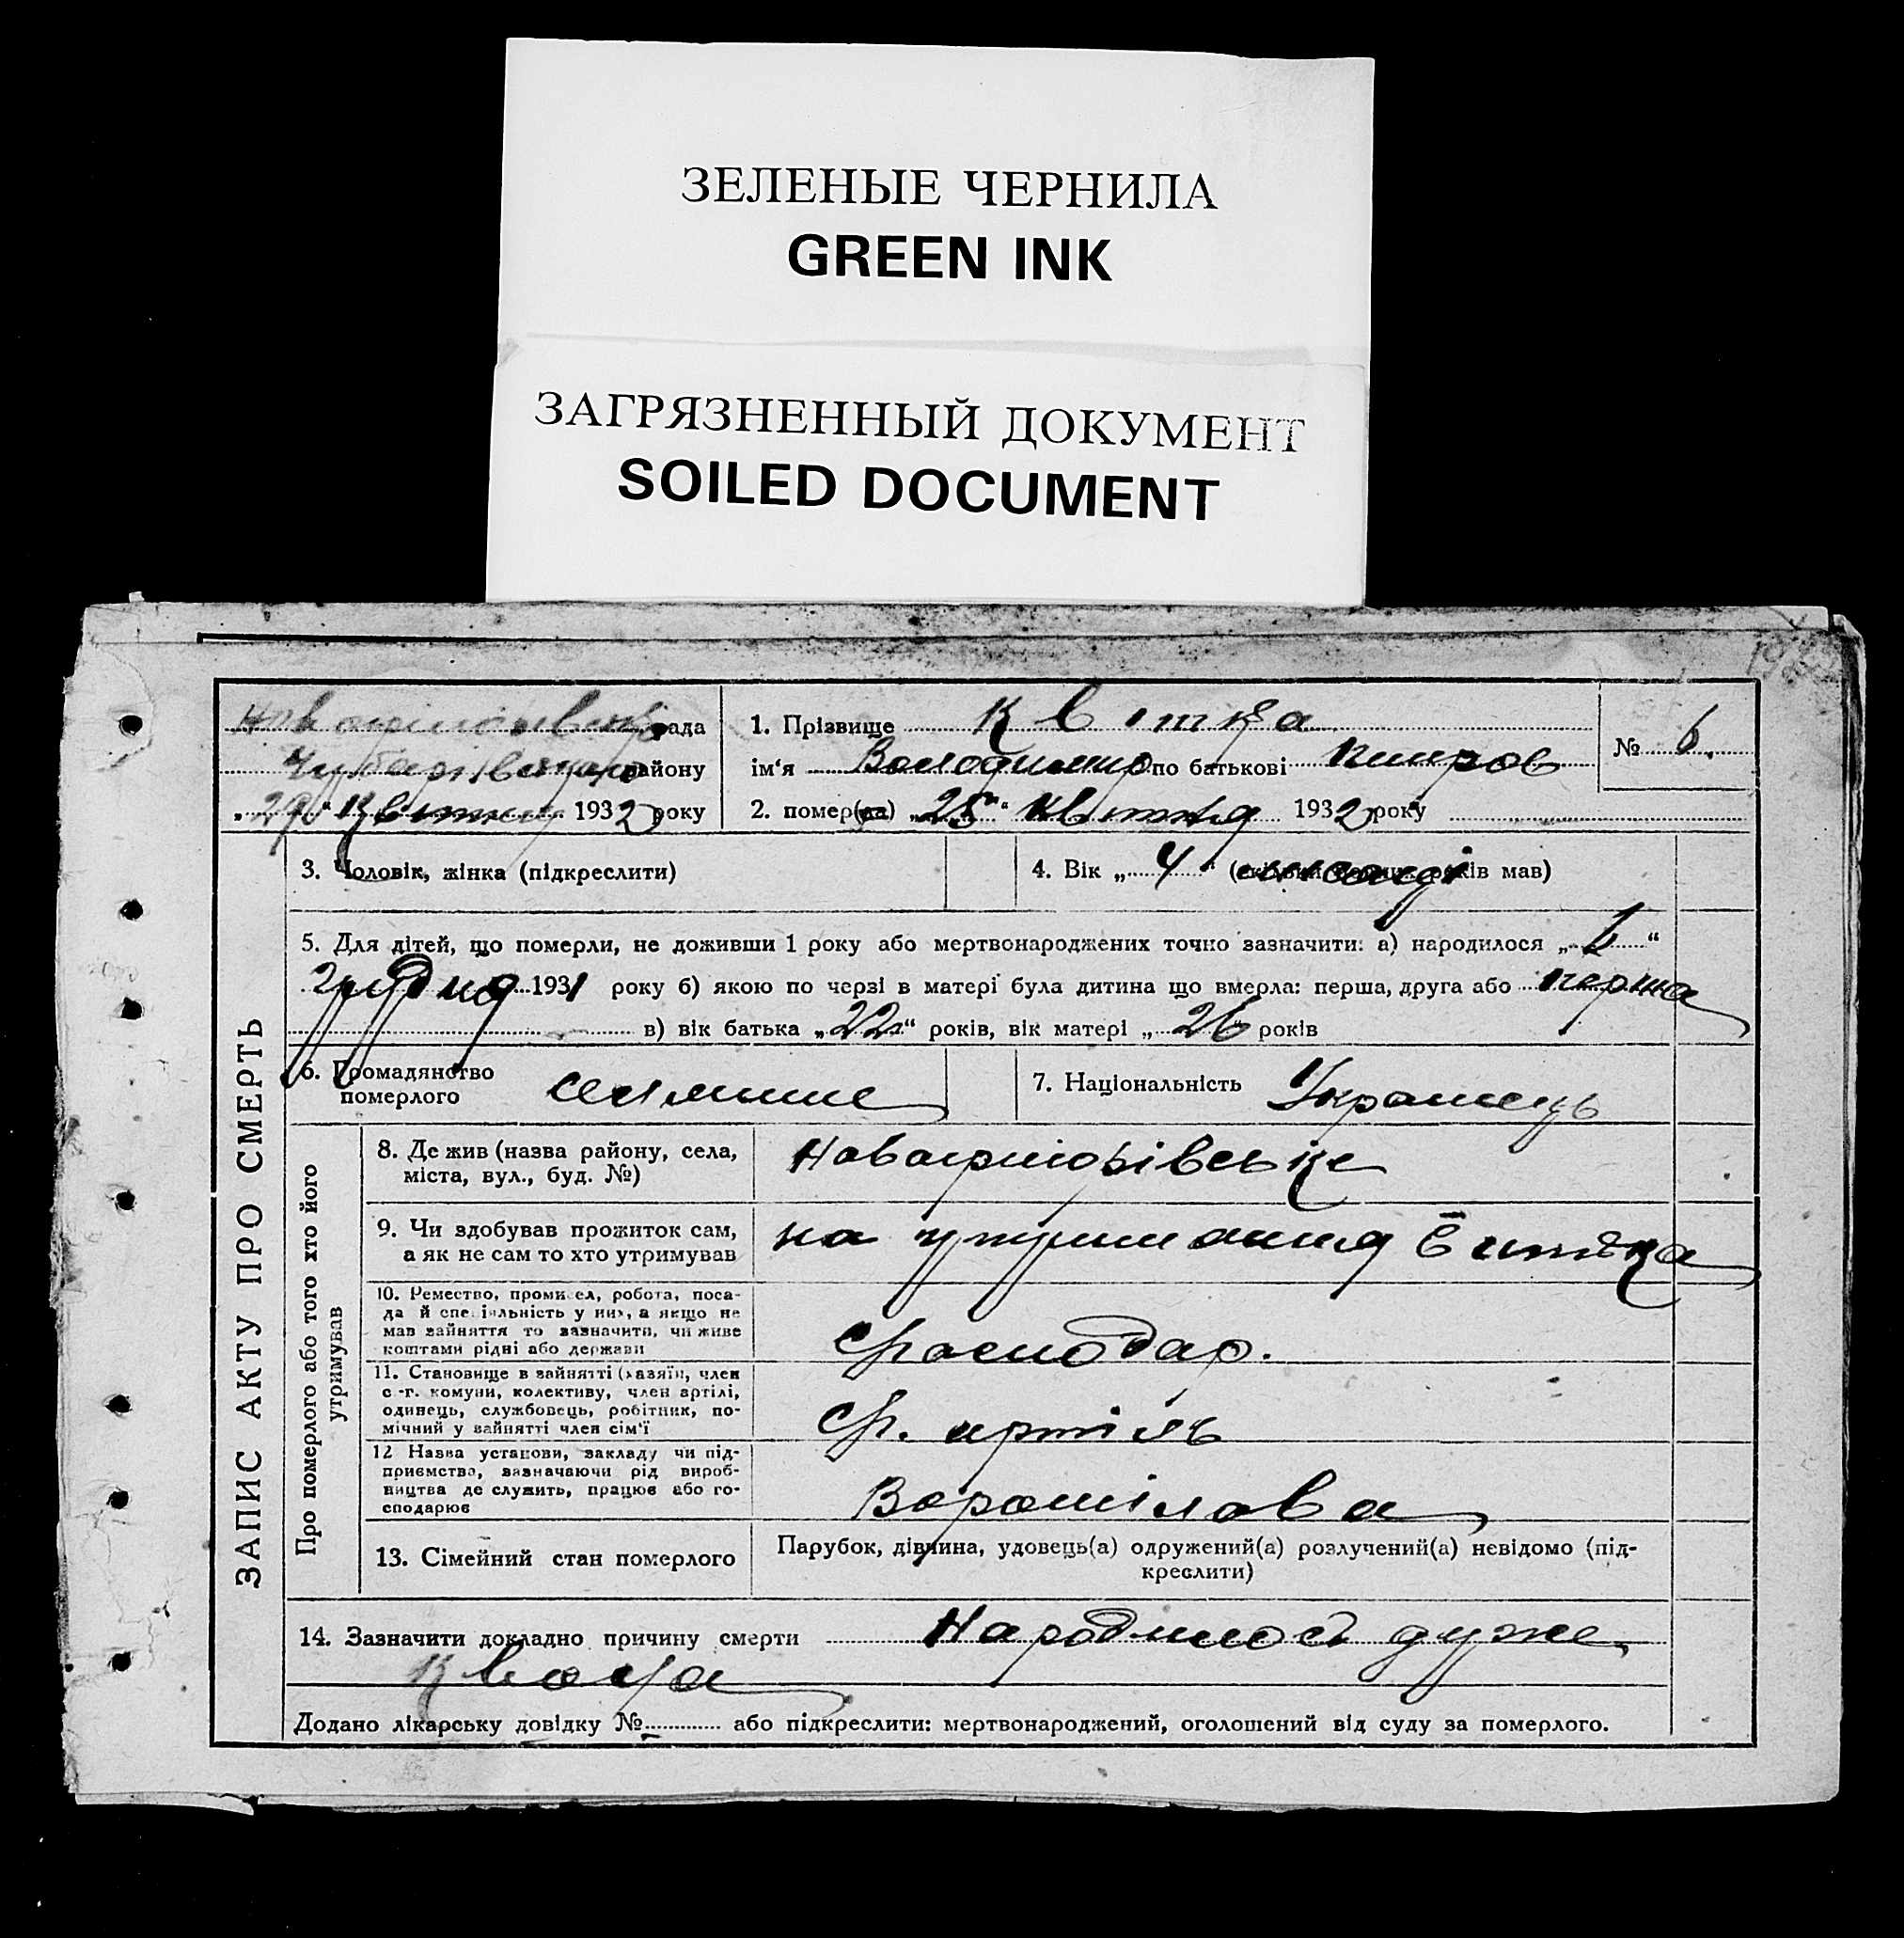 ЗЕЛЕНЫЕ ЧЕРНИЛА
GREEN INK
ЗАГРЯЗНЕННЫЙ ДОКУМЕНТ
SOILED DOCUMENT
рада
району
„29“ Квітня 1932 року
1. Прізвище Квітка
ім‘я Володимир по батькові
2. помер(ла) „25“ квітня 1932 року
№ 6.
ЗАПИС АКТУ ПРО СМЕРТЬ
3. Чоловік, жінка (підкреслити)
4. Вік „4“ (скільки повних років мав) місяці
5. Для дітей, що померли, не доживши 1 року або мертвонароджених точно зазначити: а) народилося „1“
грудня 1931 року б) якою по черзі в матері була дитина що вмерла: перша, друга або перша
в) вік батька „22“ років, вік матері „26“ років
6. Громадянство
померлого
7. Національність Украинець
Про померлого або того хто його
утримував
8. Де жив (назва району, села,
міста, вул., буд. №)
Новогригорівське
9. Чи здобував прожиток сам,
а як не сам то хто утримував
на утриманні батька
10. Ремество, промисел, робота, поса-
да й спеціяльність у них, а якщо не
мав зайняття то зазначити, чи живе
коштами рідні або держави
11. Становище в зайнятті (хазяїн, член
с.-г. комуни, колективу, член артілі,
одинець, службовець, робітник, по-
мічний у зайнятті член сім‘ї
артіль
12 Назва установи, закладу чи під-
приємства, зазначаючи рід вироб-
ництва де служить, працює або го-
сподарює
Ворошілова
13. Сімейний стан померлого
Парубок, дівчина, удовець(а) одружений(а) розлучений(а) невідомо (під-
креслити)
14. Зазначити докладно причину смерти Народилось дуже
квола
Додано лікарську довідку № або підкреслити: мертвонароджений, оголошений від суду за померлого.